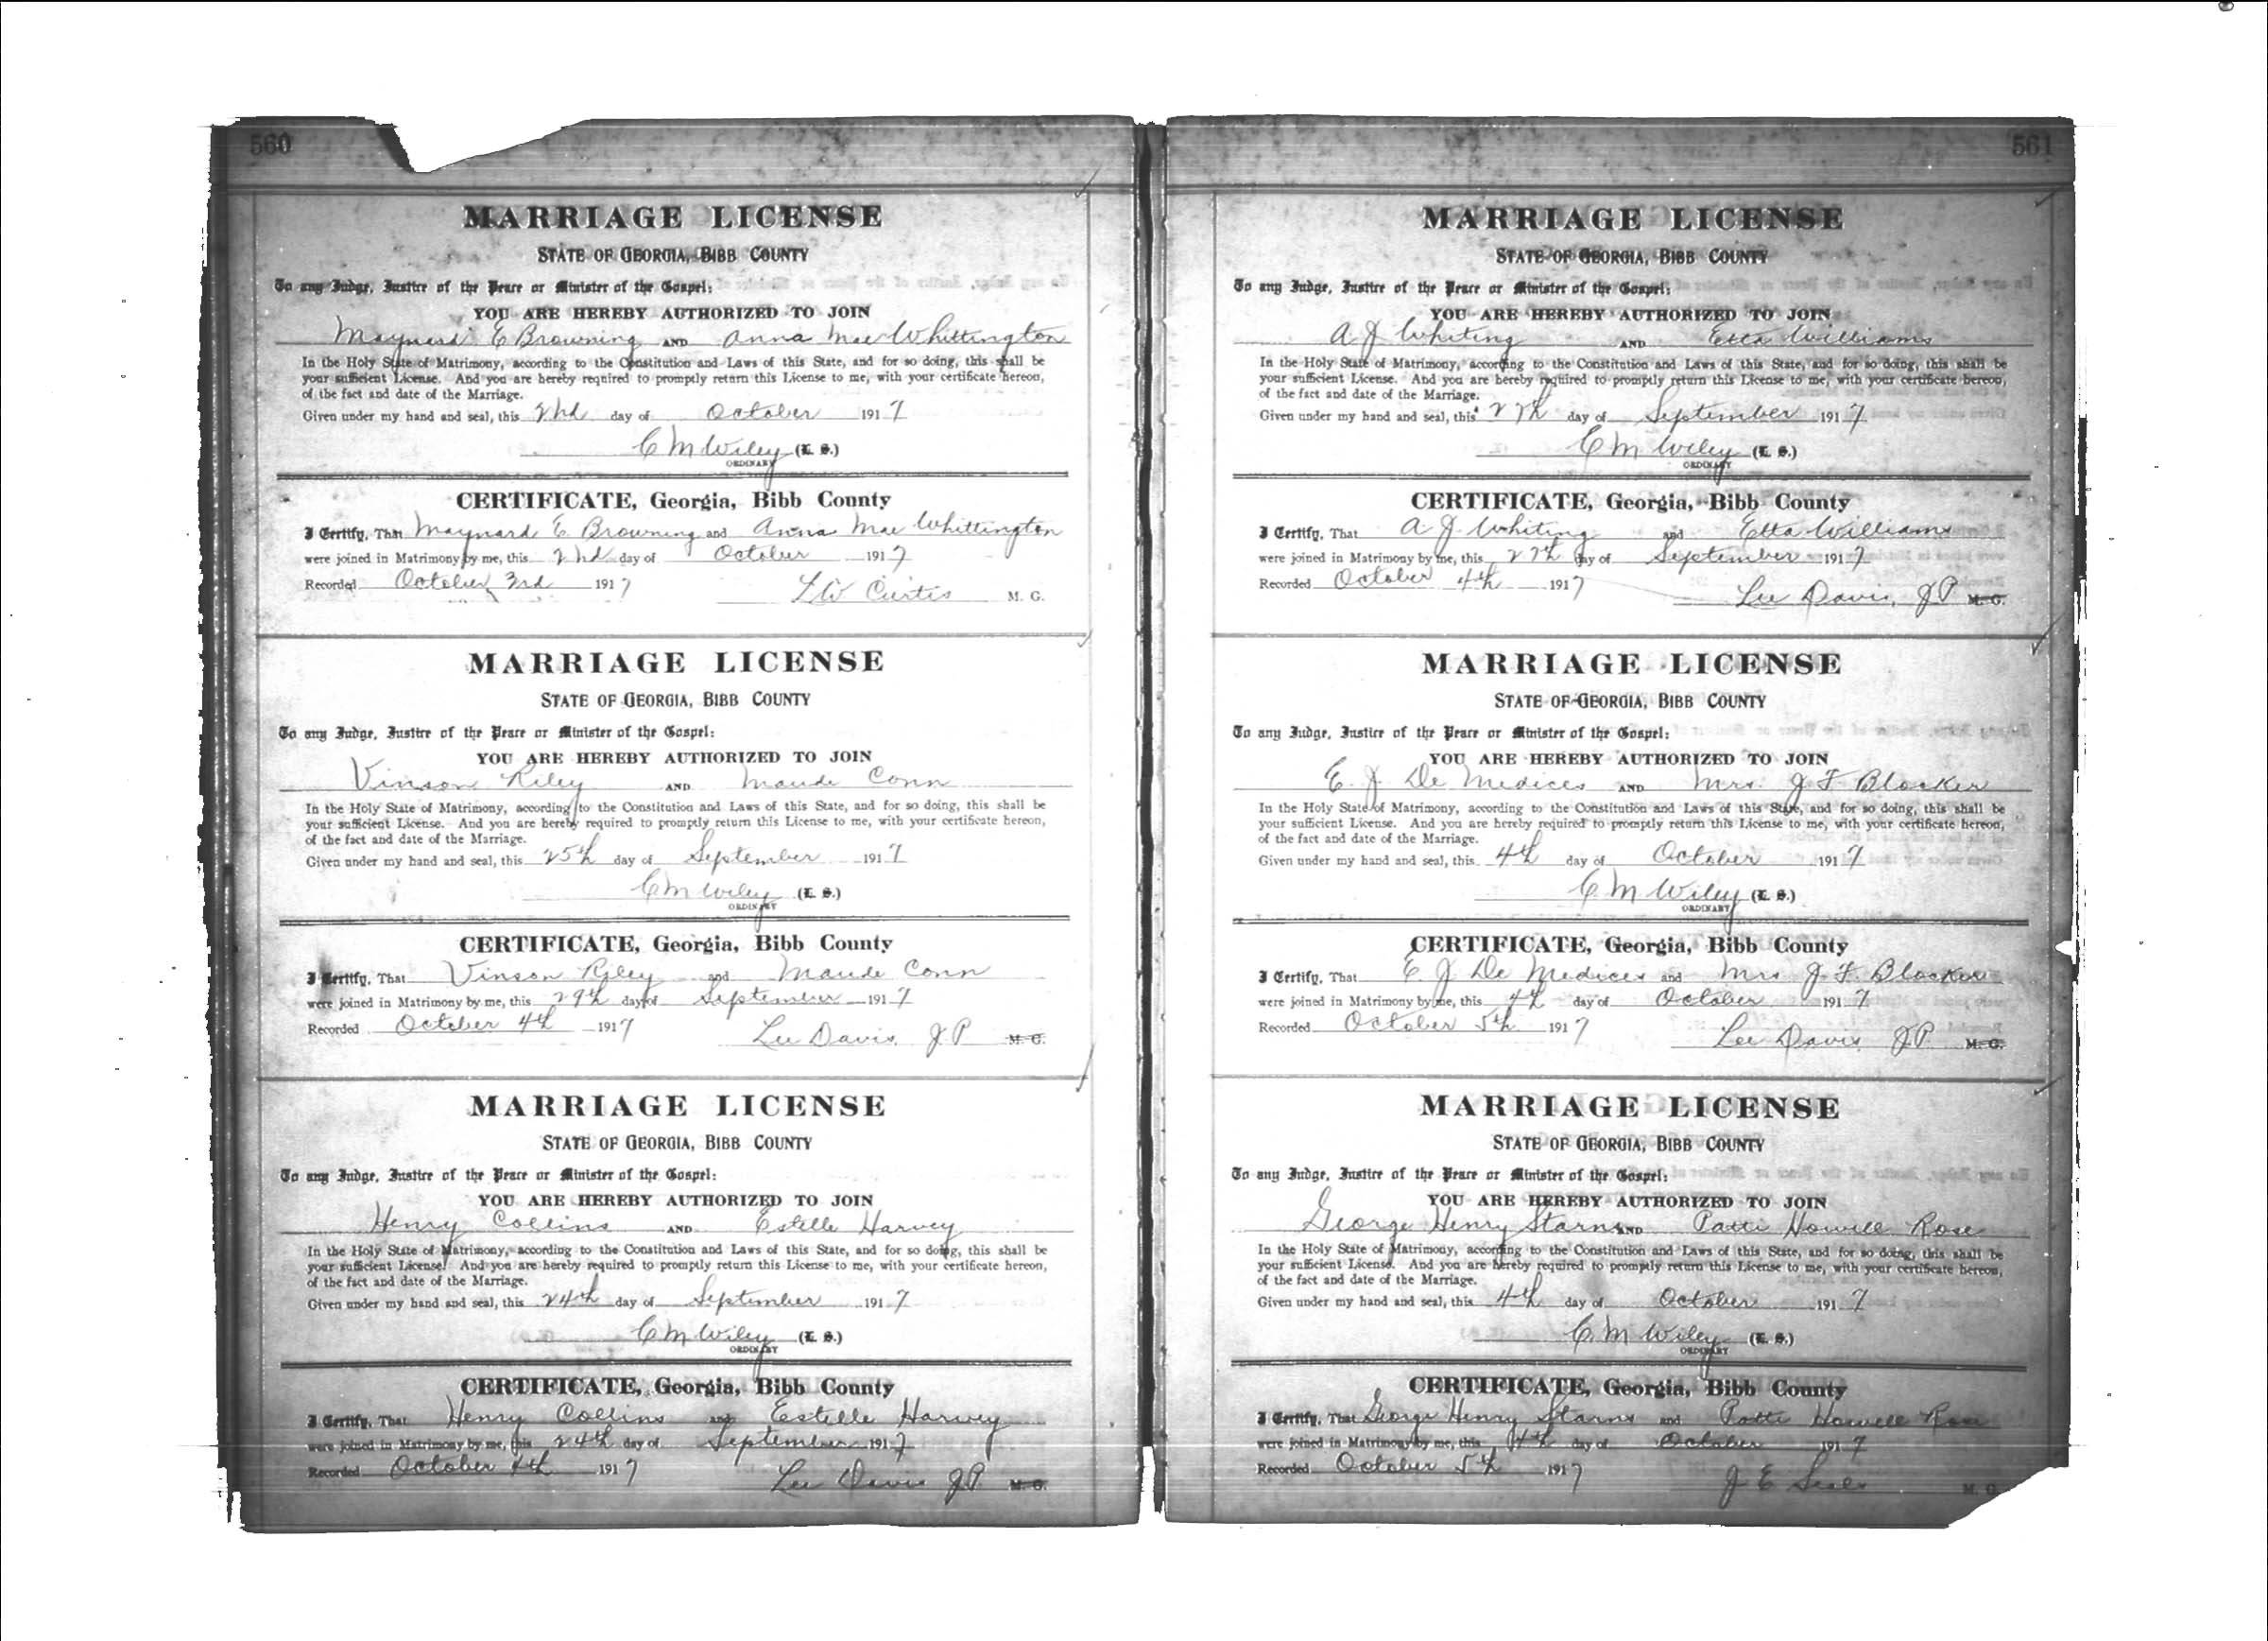 560
MARRIAGE LICENSE
STATE OF GEORGIA, BIBB COUNTY
To any Judge, Justice of the Peace or Minister of the Gospel:
YOU ARE HEREBY AUTHORIZED TO JOIN
Maynard E Browning AND Anna Mae Whittington
In the Holy State of Matrimony, according to the Constitution and Laws of this State, and for so doing, this shall be
your sufficient License. And you are hereby required to promptly return this License to me, with your certificate hereon,
of the fact and date of the Marriage.
Given under my hand and seal, this 2nd day of October 1917
C M Wiley (L. S.)
ORDINARY
CERTIFICATE, Georgia, Bibb County
I Certify, That Maynard E Browning and Anna Mae Whittington
were joined in Matrimony by me, this 2nd day of October 1917
Recorded October 3rd 1917 L W Curtis M. G.
MARRIAGE LICENSE
STATE OF GEORGIA, BIBB COUNTY
To any Judge, Justice of the Peace or Minister of the Gospel:
YOU ARE HEREBY AUTHORIZED TO JOIN
Vinson Riley AND Maude Conn
In the Holy State of Matrimony, according to the Constitution and Laws of this State, and for so doing, this shall be
your sufficient License. And you are hereby required to promptly return this License to me, with your certificate hereon,
of the fact and date of the Marriage.
Given under my hand and seal, this 25th day of September 1917
C M Wiley (L. S.)
ORDINARY
CERTIFICATE, Georgia, Bibb County
I Certify, That Vinson Riley and Maude Conn
were joined in Matrimony by me, this 29th day of September 1917
Recorded October 4th 1917 Lee Davis J P M. G.
MARRIAGE LICENSE
STATE OF GEORGIA, BIBB COUNTY
To any Judge, Justice of the Peace or Minister of the Gospel:
YOU ARE HEREBY AUTHORIZED TO JOIN
Henry Collins AND Estelle Harvey
In the Holy State of Matrimony, according to the Constitution and Laws of this State, and for so doing, this shall be
your sufficient License. And you are hereby required to promptly return this License to me, with your certificate hereon,
of the fact and date of the Marriage.
Given under my hand and seal, this 24th day of September 1917
C M Wiley (L. S.)
ORDINARY
CERTIFICATE, Georgia, Bibb County
I Certify, That Henry Collins and Estelle Harvey
were joined in Matrimony by me, this 24th day of September 1917
Recorded October 4th 1917 Lee Davis J P M. G.
561
MARRIAGE LICENSE
STATE OF GEORGIA, BIBB COUNTY
To any Judge, Justice of the Peace or Minister of the Gospel:
YOU ARE HEREBY AUTHORIZED TO JOIN
A J Whiting AND Etta Williams
In the Holy State of Matrimony, according to the Constitution and Laws of this State, and for so doing, this shall be
your sufficient License. And you are hereby required to promptly return this License to me, with your certificate hereon,
of the fact and date of the Marriage.
Given under my hand and seal, this 27th day of September 1917
C M Wiley (L. S.)
ORDINARY
CERTIFICATE, Georgia, Bibb County
I Certify, That A J Whiting and Etta Williams
were joined in Matrimony by me, this 27th day of September 1917
Recorded October 4th 1917 Lee Davis, J P M. G.
MARRIAGE LICENSE
STATE OF GEORGIA, BIBB COUNTY
To any Judge, Justice of the Peace or Minister of the Gospel:
YOU ARE HEREBY AUTHORIZED TO JOIN
E. J De Medices AND Mrs. J F Blocker
In the Holy State of Matrimony, according to the Constitution and Laws of this State, and for so doing, this shall be
your sufficient License. And you are hereby required to promptly return this License to me, with your certificate hereon,
of the fact and date of the Marriage.
Given under my hand and seal, this 4th day of October 1917
C M Wiley (L. S.)
ORDINARY
CERTIFICATE, Georgia, Bibb County
I Certify, That E J De Medices and Mrs J. F. Blocker
were joined in Matrimony by me, this 4th day of October 1917
Recorded October 5th 1917 Lee Davis J P. M. G.
MARRIAGE LICENSE
STATE OF GEORGIA, BIBB COUNTY
To any Judge, Justice of the Peace or Minister of the Gospel:
YOU ARE HEREBY AUTHORIZED TO JOIN
George Henry Starns AND Patti Howell Rose
In the Holy State of Matrimony, according to the Constitution and Laws of this State, and for so doing, this shall be
your sufficient License. And you are hereby required to promptly return this License to me, with your certificate hereon,
of the fact and date of the Marriage.
Given under my hand and seal, this 4th day of October 1917
C. M Wiley (L. S.)
ORDINARY
CERTIFICATE, Georgia, Bibb County
I Certify, That George Henry Starns and Patti Howell Rose
were joined in Matrimony by me, this 4th day of October 1917
Recorded October 5th 1917 J E Seals M. G.